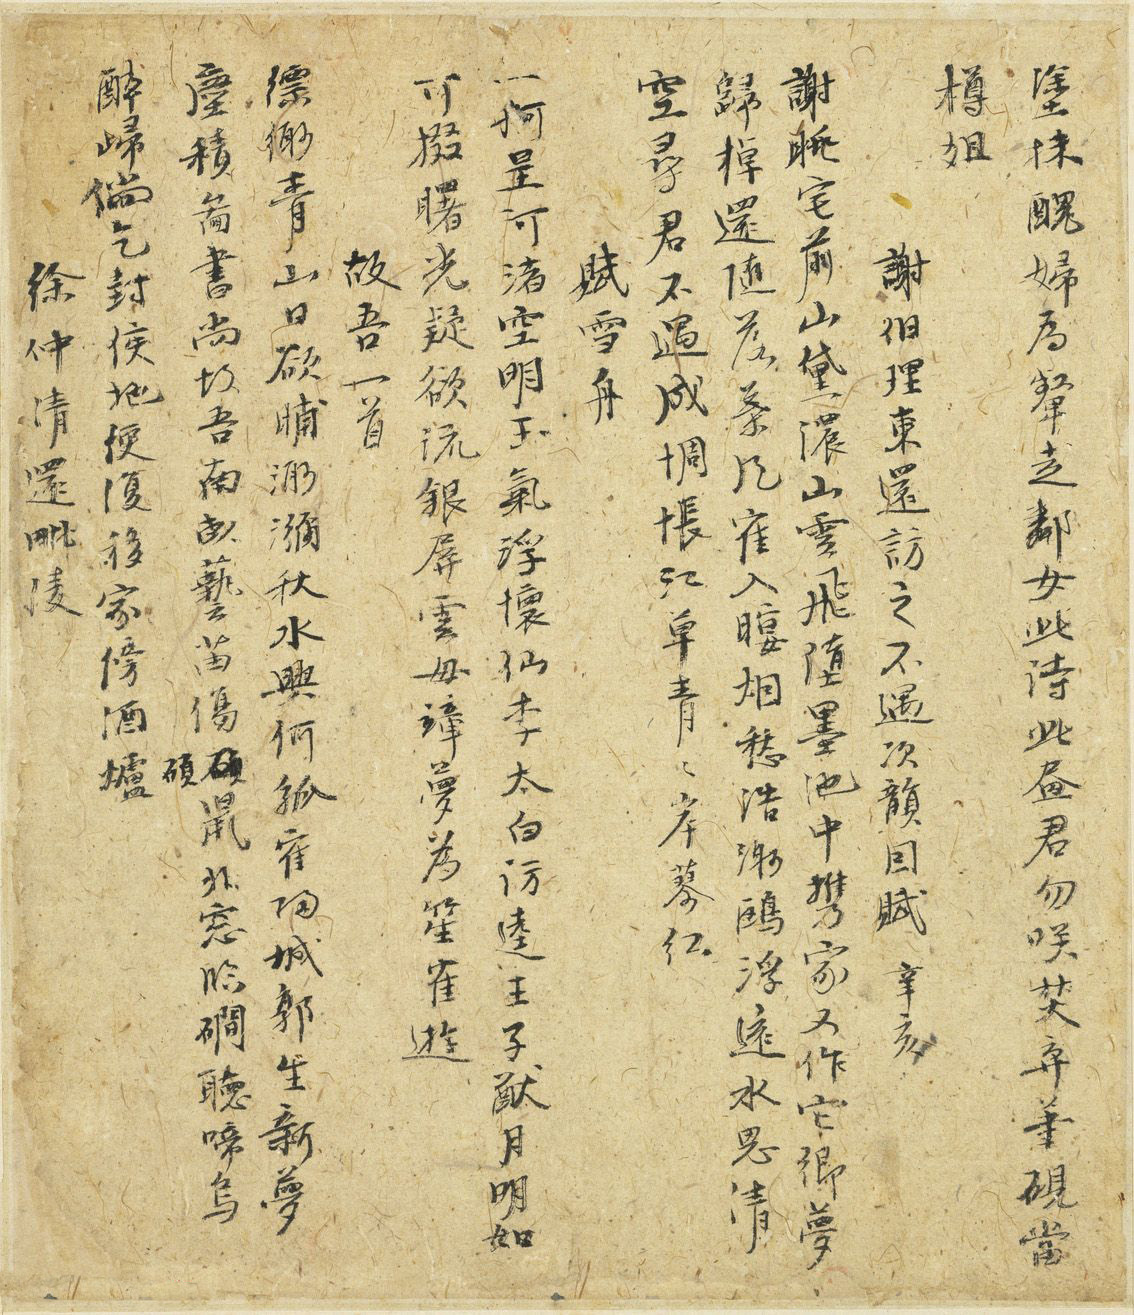 塗抹醜婦為顰走鄰女此詩此畫君勿咲焚弃筆硯當
樽俎
謝伯理東還訪之不遇次韻因賦 辛亥
謝眺宅前山黛濃山雲飛墮墨池中携家又作它鄉夢
歸棹還隨落葉風寉入暝烟愁浩渺鷗浮遠水思清
空尋君不遇成惆悵江草青〻岸蓼紅
賦雪舟
一舸星河渚空明玉氣浮懷仙李太白訪逵王子猷月明如
可掇曙光疑欲流銀屏雲母幛夢為笙雀遊
故吾一首
縹緲青山日欲晡瀰瀰秋水興何孤寉歸城郭生新夢
塵積啚書尚故吾南畝藝苗傷碩鼠北窓臨磵聴啼烏
碩
醉歸倘乞封侯地便復移家傍酒壚
徐仲清還毗陵